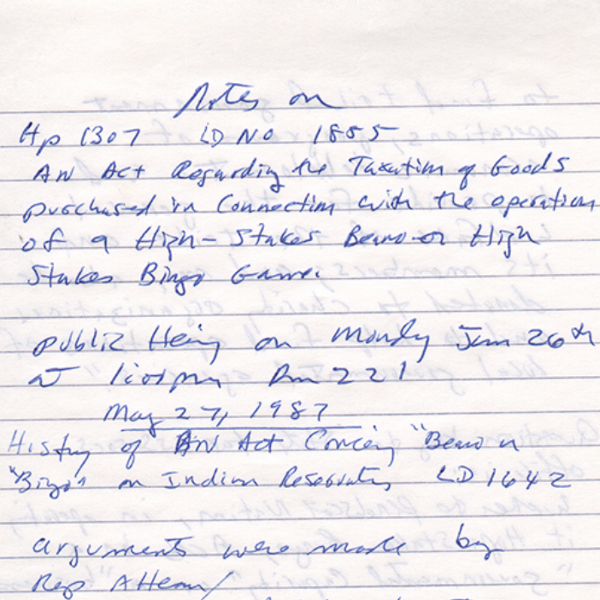 Notes on
Hp 1307 LD NO 1885
AN Act Regarding the Taxation of Goods
purchased in Connection with the operation
of a High-Stakes Beano or High
Stakes Bingo Game.
public Hering on Mondy Jan 26th
at 1:00 pm Rm 221
May 27, 1987
History of AN Act Concering "Beano or
"Bingo" on Indian Reservatins LD 1642
arguments were made by
Rep Attean/